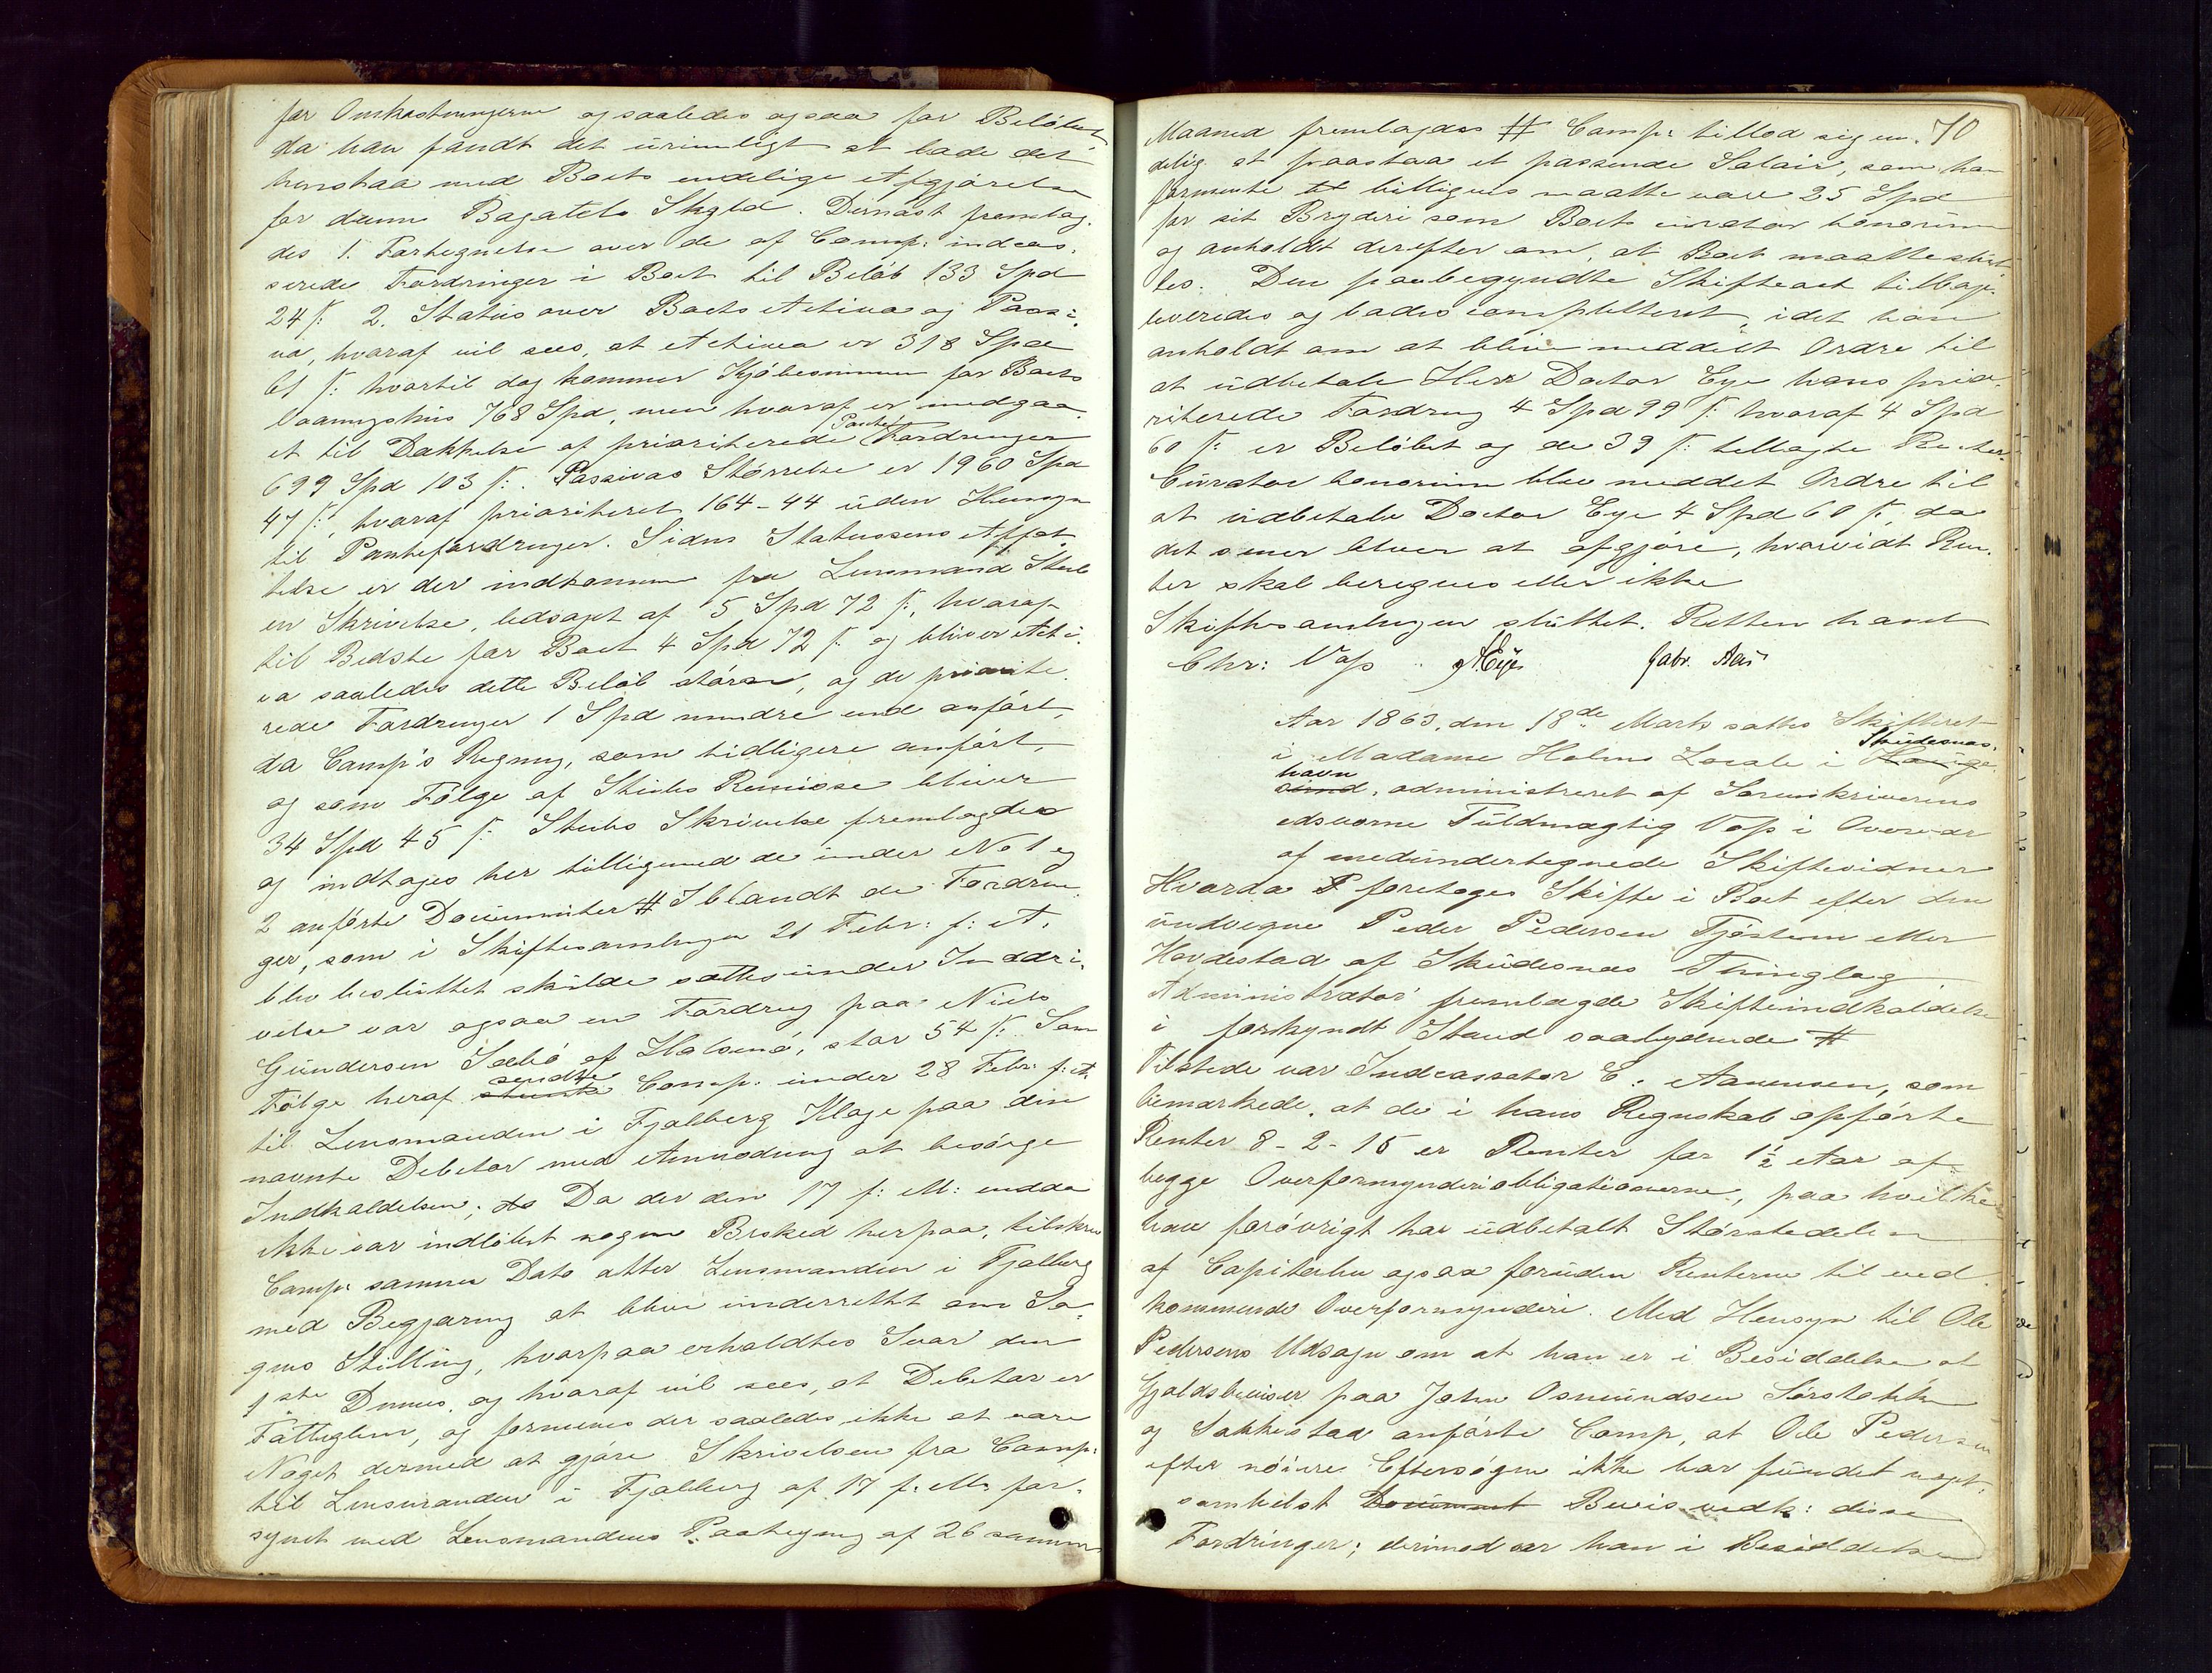 for Omkostningerne og saaledes ogsaa for Beløbet
da han fandt det urimeligt at lade det
henstaa med Boets endelige Afgjørelse
for denne Bagatels Skyld. Dernæst fremlag-
des 1. Fortegnelse over de af Comp: indcas-
serede Fordringer i Boet til Beløb 133 Spd
24 ß: 2. Status over Boets Activa og Passi-
va, hvoraf vil sees, at Activa er 318 Spd
61 ß: hvortil dog kommer Kjøbesummen for Boets
Vaaningshus 768 Spd, men hvoraf er medgaa-
et til Dækkelse af prioriterede Pante Fordringer
699 Spd 103 ß:. Passivas Størrelse er 1960 Spd
47 ß:, hvoraf prioriteret 164-44 uden Hensyn
til Pantefordringer. Siden Statussens Affat-
telse er der indkommen fra Lensmand
en Skrivelse, ledsaget af 5 Spd 72 ß:, hvoraf
til Bedste for Boet 4 Spd 72 ß: og bliver Acti-
va saaledes dette Beløb større, og de priorite-
rede Fordringer 1 Spd mindre end anført,
da Comp's Regning, som tidligere anført,
og som Følge af Remisse bliver
34 Spd 45 ß: Skrivelse fremlagdes
og indtages her tilligemed de under No 1 og
2 anførte Documenter # Iblandt de Fordrin-
ger, som i Skiftesamlingen 21 Febr: f: A.
blev besluttet skulde sættes under Inddri-
velse var ogsaa en Fordring paa Niels
Gundersen Sæbø af Halsenø, stor 54 ß: Som
Følge heraf sendte Comp: under 28 Febr: f: A.
til Lensmanden i Fjelberg Klage paa den
nævnte Debitor med Anmodning at besørge
Indkaldelsen; Da der den 17 f: M: endda
ikke var indløbet nogen Besked herpaa, tilskrev
Comp: samme Dato atter Lensmanden i Fjelberg
med Begjæring at blive underrettet om Sa-
gens Stilling, hvorpaa erholdtes Svar den
1ste Dennes, og hvoraf vil sees, at Debitor er
Fattiglem, og formenes der saaledes ikke at være
Noget dermed at gjøre. Skrivelsen fra Comp:
til Lensmanden i Fjelberg af 17 f: M: for-
synet med Lensmandens Paategning af 26 samme
Maaned fremlagdes # Comp: tillod sig en- 70
delig at paastaa et passende Salair, som han
formente billigens maatte være 25 Spd
for sit Bryderi som Boets curator bonorum
og anholdt derefter om, at Boet maatte slut-
tes. Den paabegyndte Skifteact tilbage-
leveredes og lades completteret, idet han
anholdt om at blive meddelt Ordre til
at udbetale Herr Doctor Eye hans prio-
riterede Fordring 4 Spd 99 ß: hvoraf 4 Spd
60 ß: er Beløbet og de 39 ß: tillagte Renter.
Curator bonorum blev meddelt Ordre til
at udbetale Doctor Eye 4 Spd 60 ß:, da
det senere bliver at afgjøre, hvorvidt Ren-
ter skal beregnes eller ikke
Skiftesamlingen sluttet. Retten hævet
Chr: Voss Gabr. Aas
Aar 1863, den 18de Marts sattes Skifteret
i Madame Holms Locale i Skudesnæs-
havn, administreret af Sorenskriverens
edsvorne Fuldmægtig Voss i Overvær
af medundertegnede Skiftevidner
Hvorda foretoges Skifte i Boet efter den
undvegne Peder Pedersen Tjøstem eller
Hovdestad af Skudesnæs Thinglag
Administrator fremlagde Skifteindkaldelse
i forkyndt Stand saalydende #
Tilstede var Indcassator E. Aanensen, som
bemærkede, at de i hans Regnskab opførte
Renter 8-2-15 er Renter for 1½ Aar af
begge Overformynderiobligationerne, paa hvilke
han forøvrigt har udbetalt Størstedelen
af Capitalen ogsaa foruden Renterne til ved-
kommende Overformynderi. Med Hensyn til Ole
Pedersens Udsagn om at han er i Besiddelse af
Gjældsbeviser paa John Osmundsen Sørstokke
og Sakkestad anførte Comp, at Ole Pedersen
efter nøiere Eftersøgen ikke har fundet noget-
somhelst Document Bevis vedk: disse
Fordringer; derimod var han i Besiddelse